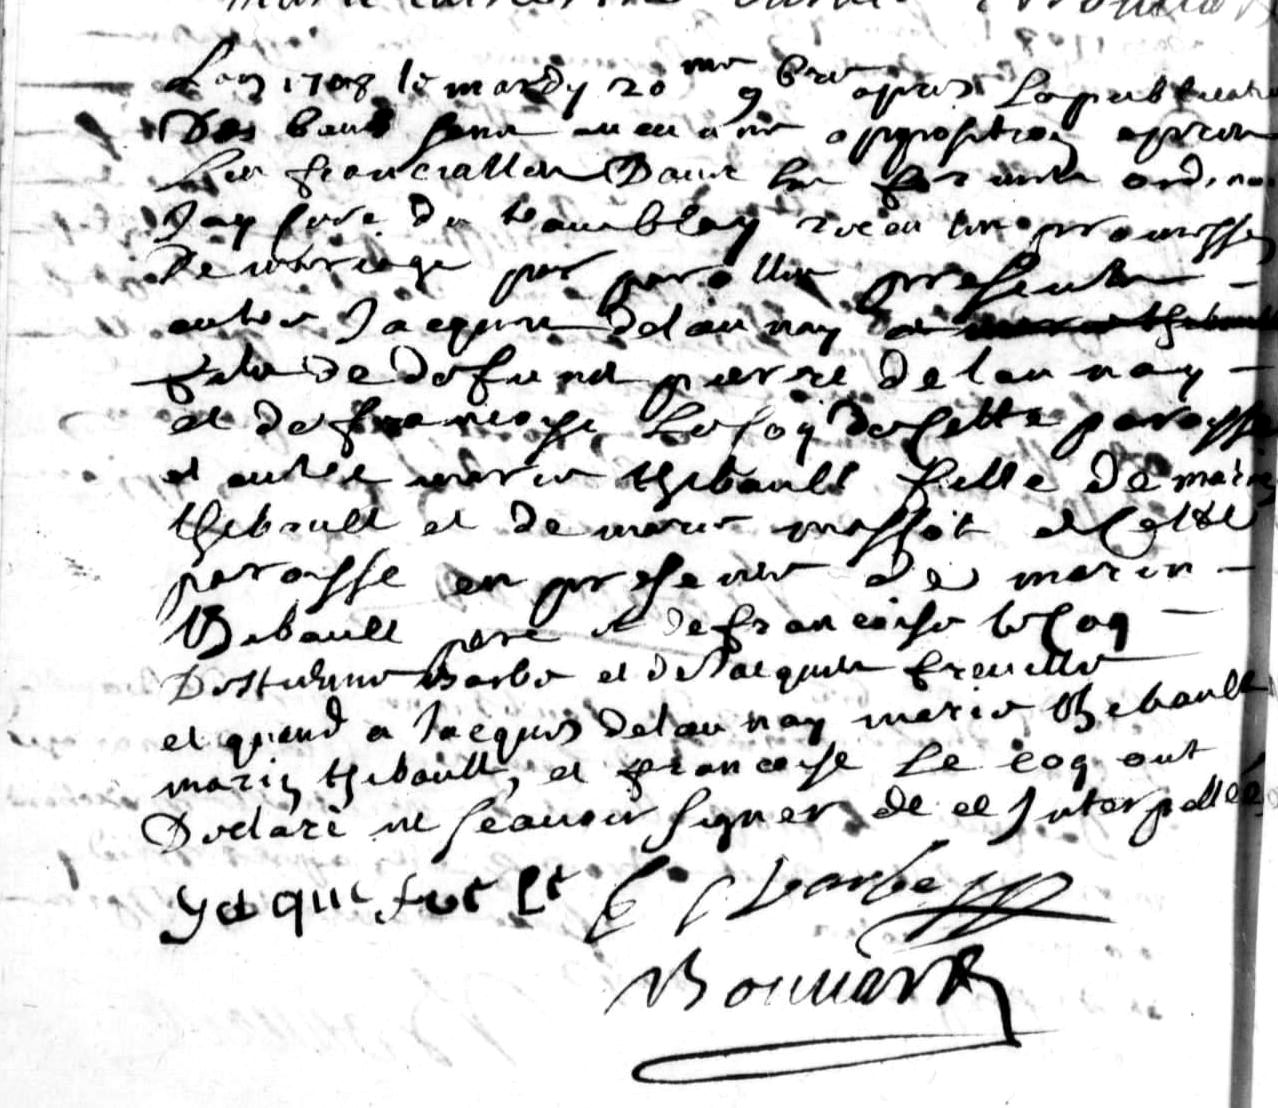 Lan 1708 le mardy 20 me 9bre apres la publication
Des bans sans aucune opposition apres
les fiancialles Dans les formes ordina
Jay Cure du tremblay recu les promesses
De mariage par parolles presentes
entre Jacques delaunay et
fils de defunt pierre delaunay
et de francoise Lecoq de cette paroisse
et entre marie thibault fille de marin
thibault et de marie massot de Cette
paroisse en presence de marin
thibault pere et de francoise le Coq
Destienne Barbe et de Jacques
et quand a Jacques delaunay marie thebault
marin thibault, et francoise Le coq ont
Declaré ne scauoir signer de ce Interpellés
Jaque E Barbe
Bouuard